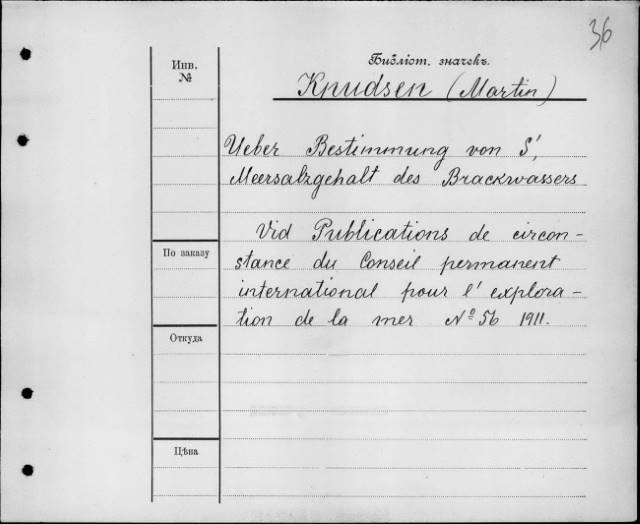 36
Библіот. значекъ.
Инв.
№
Knudsen (Martin)
Ueber Bestimmung von S',
Meersalzgehalt des Brackwassers
Vid Publications de circon-
stance du Conseil permanent
international pour l'explora-
tion de la mer № 56 1911.
По заказу
Откуда
Цѣна